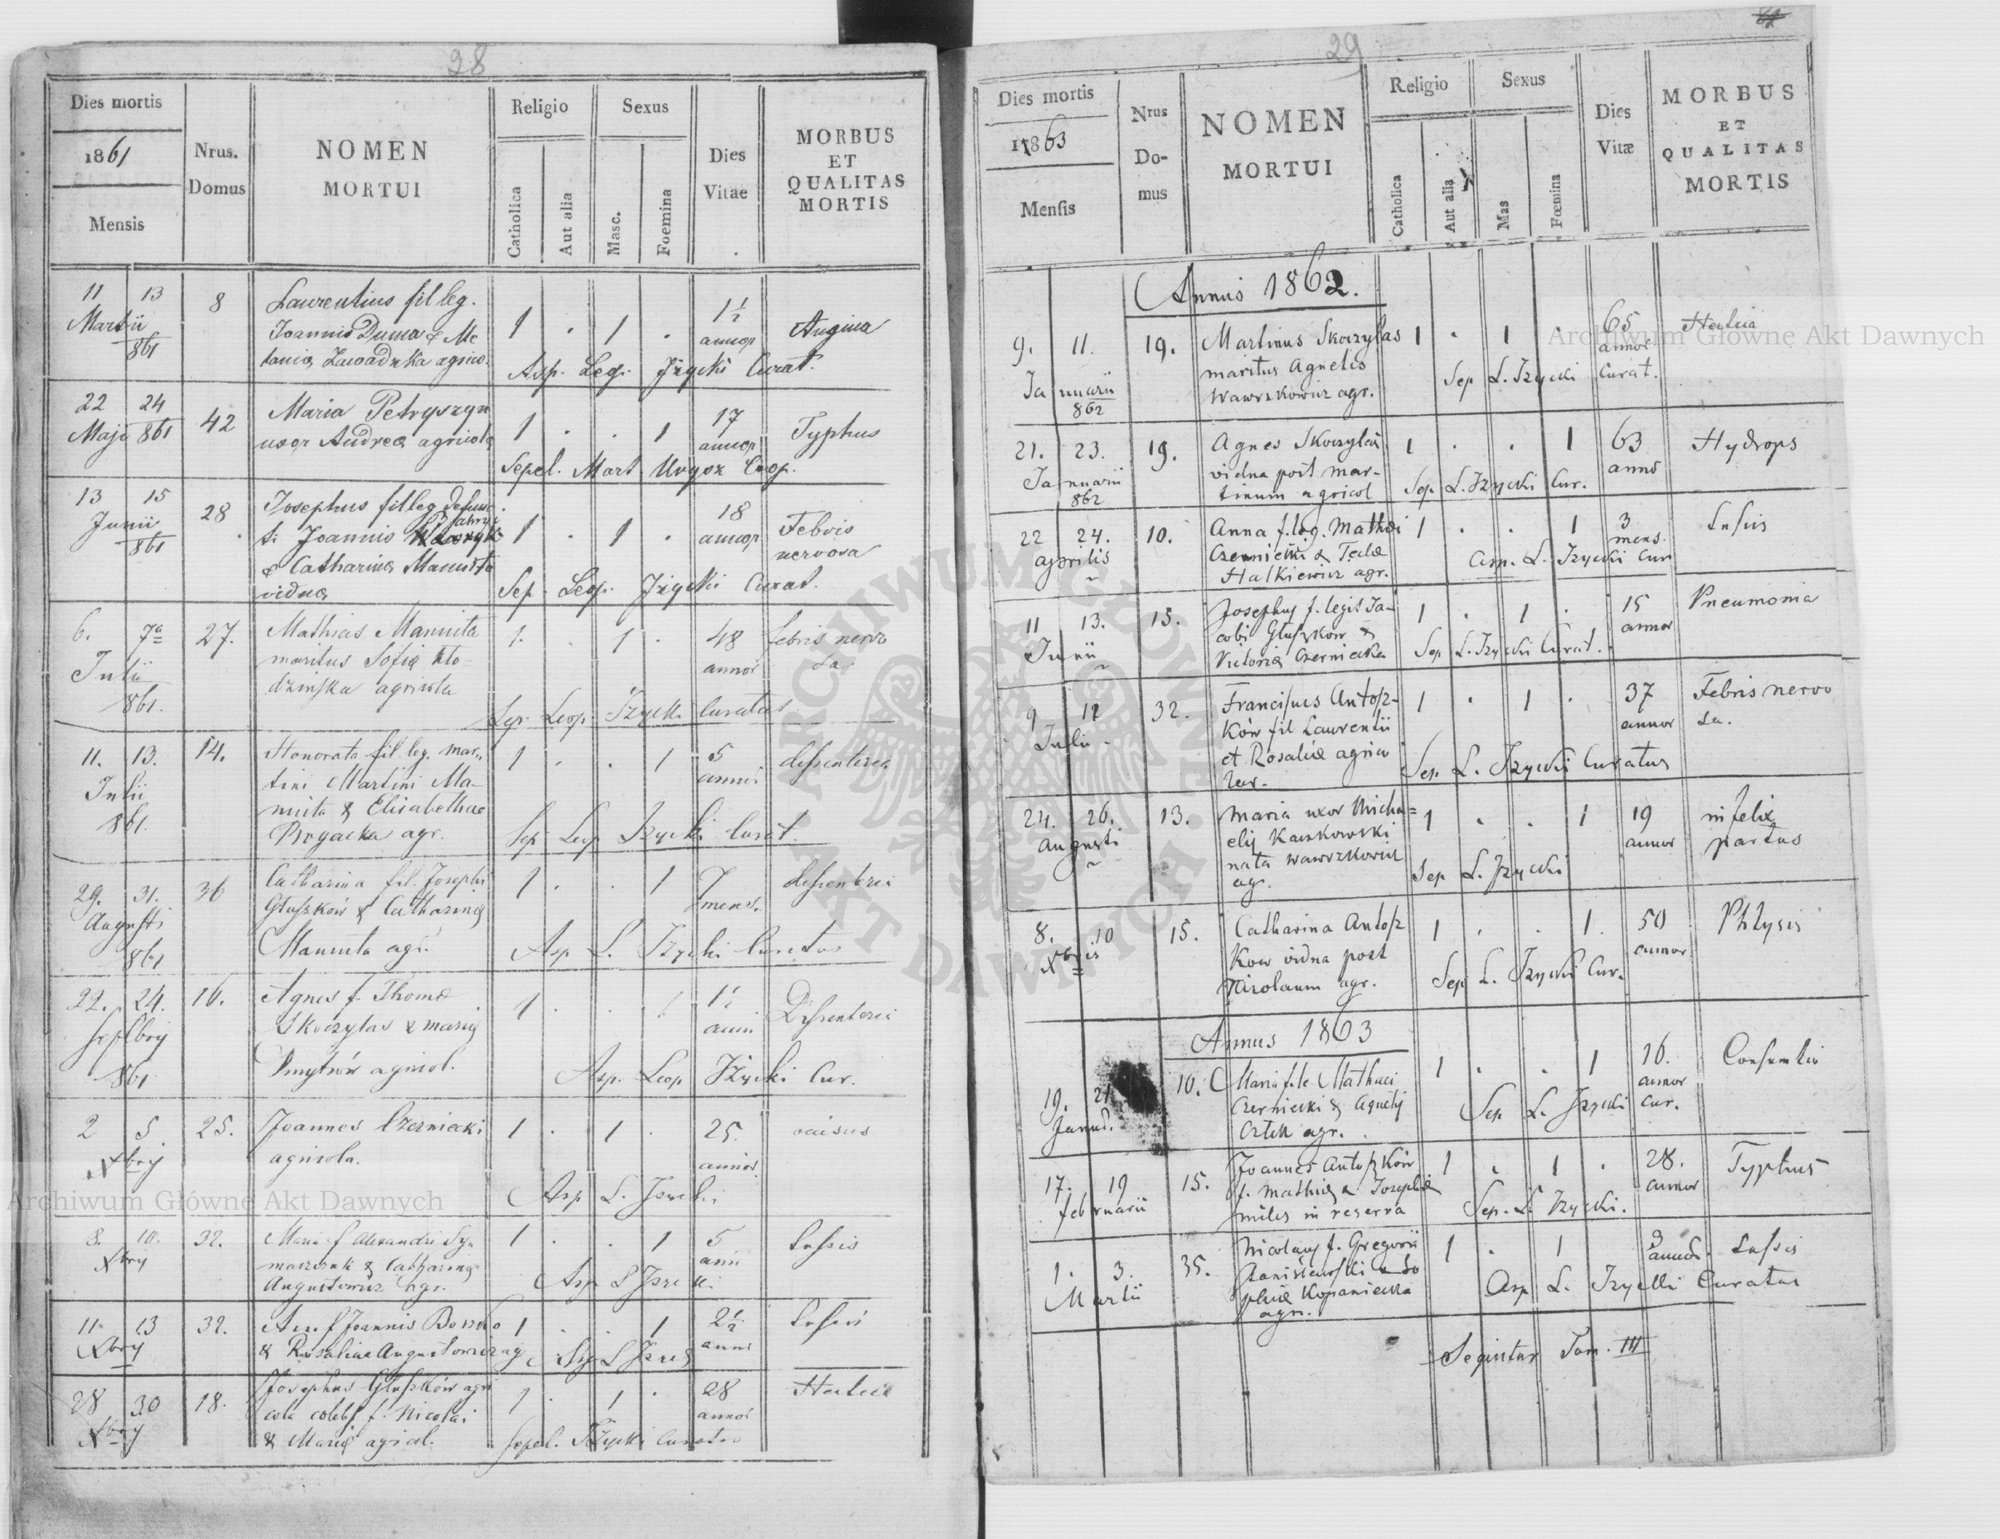 28
Dies mortis
1861
Mensis
Nrus.
Domus
NOMEN
MORTUI
Religio
Catholica
Aut alia
Sexus
Masc.
Foemina
Dies
Vitae
MORBUS
ET
QUALITAS
MORTIS
11 13 8 Laurentius fil leg.
Martii Joannis Duma & Me 1 . 1 . 1½ Angina
861 lania Zawadzka agrico. annor
Asp. Leop. Jzycki Curat.
22 24 42 Maria Petryszyn 17
Maji 861 uxor Andreæ agricola 1 . . 1 annor Typhus
Sepel. Mart. Coop.
13 15 28 Josephus fil leg defunc 18
Junii ti Joannis 1 . 1 . annor Febris
861 & Catharina Manuita nervosa
vidua Sep. Leop. Jzycki Curat.
6. 7a 27. Mathias Manuita 1. . 1 . 48 febris nervo
Julii maritus Sofiæ Kło- annor sa.
861. dzinska agricola
Sep. Leop. Izycki Curatus
11. 13. 14. Honorata fil. leg. Mar- 1 . . 1 5 dissenteria
Julii tini Martini Ma- anni
861. nuita & Elisabethae
agr. Sep Leop Izycki Curat.
29. 31. 36 Catharina fil. Josephi 1 . . 1 7 dissenteria
Augusti Głuszków & Catharina mens.
861 Manuita agr. Asp L. Izycki Curatus
22. 24. 16. Agnes f. Thomæ 1 . . 1 1½ Dissenteria
Septbris Skoczylas & Maria anni
861 Dmytrów agricol.
Asp. Leop Izycki Cur.
2 5 25. Joannes Czerniecki 1 . 1 . 25.
Xbris agricola. annor
Asp L. Izycki
8. 10. 32. Maria f Alexandri Szy- 1 . . 1 5 Tussis
Xbris & Catharina anni
Augustowicz agr. Asp L Izycki.
11 13 32. f Joannis Bosz 1 . . 1 2½ Tussis
Xbris & Rosaliae Augustowicz agr Asp L Izycki anni
28 30 18. Josephus Głuszków agri 1 . 1 . 28 Hectica
Xbris cola coelebs f. Nicolai annor
& Maria agricol. Sepel. Izycki Curatus
29
Dies mortis
1863
Mensis
Nrus
Do-
mus
NOMEN
MORTUI
Religio
Catholica
Aut alia
Sexus
Mas
Fœmina
Dies
Vitæ
MORBUS
ET
QUALITAS
MORTIS
Annus 1862.
9. 11. 19. Martinus Skoczylas 1 . 1 . 65 Hectica
Januarii maritus Agnetis annor
862 Wawrzkowicz agr. Sep L. Izycki Curat.
21. 23. 19. Agnes Skoczylas 1 . . 1 63 Hydrops
Januarii vidua post Mar- anno
862 tinum agricol Sep L. Izycki Cur.
22 24. 10. Anna f. leg. Mathæi 1 . . 1 3 Tussis
Aprilis Czerniecki & Teclæ mens.
Halkiewicz agr. Asp. L. Izycki Cur
11 13. 15. Josephus f. legit Ja- 1 . 1 . 15 Pneumonia
Junii cobi Głuszków & annor
Victoriæ Czerniecka Sep L. Izycki Curat.
9 12 32. Franciscus Antosz- 1 . 1 . 37 Febris nervo
Julii ków fil Laurentii annor sa.
et Rosaliæ agrico
lar. Sep. L. Izycki Curatus
24. 26. 13. Maria uxor Micha= 1 . . 1 19 infelix
Augusti elis Kaczkowski annor partus
nata Wawrzkowicz
agr. Sep L. Izycki
8. 10 15. Catharina Antosz 1 . . 1. 50 Phtysis
Xbris kow vidua post annor
Nicolaum agr. Sep L. Izycki Cur.
Annus 1863
19. 21 10. Maria f. le Mathaei 1 . . 1 16.
Januar. Czerniecki & Agnetis annor
agr. Sep L. Izycki Cur.
17. 19 15. Joannes Antoszków 1 . 1 . 28. Typhus
februarii f. Mathiæ & Josephæ annor
miles in reserva Sep. L. Izycki.
1. 3. 35. Nicolaus f. Gregorii 1 . 1 Tussis
Martii Staniszewski & So
phiæ Kopaniecka Asp L. Izycki Curatus
agr.
Seqintur Tom. III
Archiwum Główne Akt Dawnych
Archiwum Główne Akt Dawnych
ARCHIWUM GŁÓWNE
AKT DAWNYCH